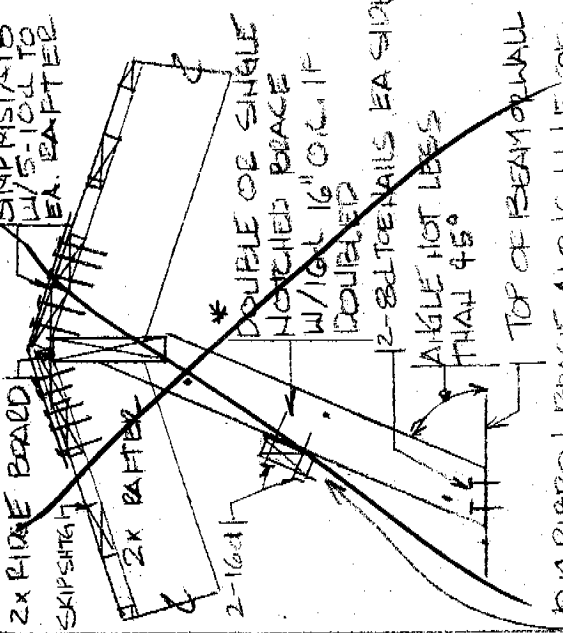 2x RIDGE BOARD
SKIP SHTG
2x RAFTER
2-16d
W/5-10d TO
EA. RAFTER
*
DOUBLE OR SINGLE
NOTCHED BRACE
W/16d 16" O.C. IF
DOUBLED
2-8d TOENAILS EA SIDE
ANGLE NOT LESS
THAN 45°
TOP OF BEAM OR WALL